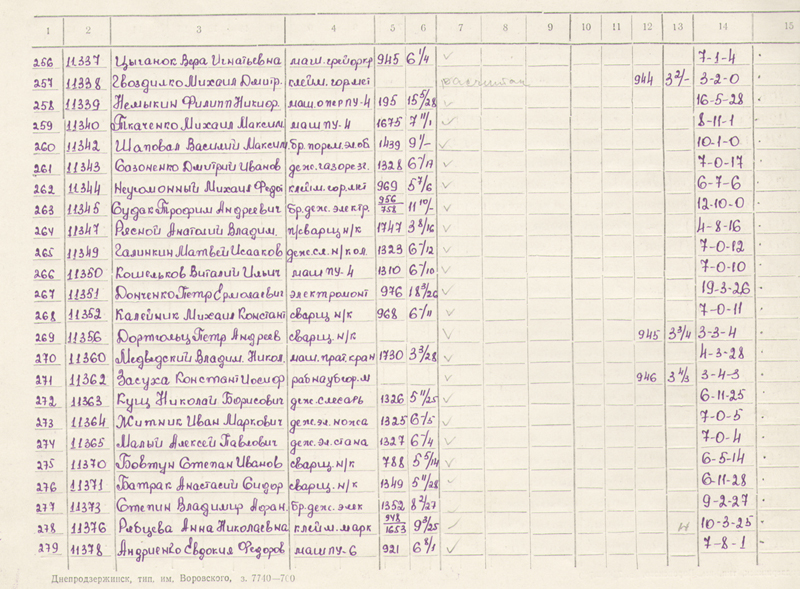 1 2 3 4 5 6 7 8 9 10 11 12 13 14 15
256 11337 Цыганок Вера Игнатьевна маш. грейфкр 945 6 1/4 ✓ 7-1-4
257 11338 Гвоздилко Михаил Дмитр. клейм. гор. мет 944 3 2/- 3-2-0
258 11339 Немыкин Филипп Никиор. маш опер ПУ-4 195 15 5/28 ✓ 16-5-28
259 11340 Ткаченко Михаил Максим маш ПУ-4 1675 7 11/1 ✓ 8-11-1
260 11342 Шаповал Василий Максим 1439 9 1/- ✓ 10-1-0
261 11343 Сазоненко Дмитрий Иванов деж. газорезч. 1328 6 -/17 ✓ 7-0-17
262 11344 Неугомонный Михаил Феды клейм. гор. мет 969 5 7/6 ✓ 6-7-6
263 11345 Судак Трофим Андреевич бр. деж. электр. 956/758 11 10/- ✓ 12-10-0
264 11347 Рясной Анатолий Владим. п/сварщ н/к 1747 3 8/16 ✓ 4-8-16
265 11349 Галинкин Матвей Исааков деж. сл. н/кол. 1323 6 -/12 ✓ 7-0-12
266 11350 Кошельков Виталий Ильич маш ПУ-4 1310 6 -/10 ✓ 7-0-10
267 11351 Донченко Петр Ермолаевич электромонт 976 18 3/26 ✓ 19-3-26
268 11352 Калейник Михаил Констант сварщ н/к 968 6 -/11 ✓ 7-0-11
269 11356 Дортгольц Петр Андреев сварщ. н/к ✓ 945 3 3/4 3-3-4
270 11360 Медведский Владим. Никол. маш. прат. кран 1730 3 3/28 ✓ 4-3-28
271 11362 Засуха Констант Иосифор ✓ 946 3 4/3 3-4-3
272 11363 Кущ Николай Борисович деж. слесарь 1326 5 11/25 ✓ 6-11-25
273 11364 Житник Иван Маркович деж. эл. ножа 1325 6 -/5 ✓ 7-0-5
274 11365 Малый Алексей Павлович деж. эл. стана 1327 6 -/4 ✓ 7-0-4
275 11370 Бовтун Степан Иванов сварщ. н/к 788 5 5/14 ✓ 6-5-14
276 11371 Батрак Анастасий Сидор сварщ. н/к 1349 5 11/28 ✓ 6-11-28
277 11373 Степин Владимир Афан. бр. деж. элек 1352 8 2/27 ✓ 9-2-27
278 11376 Рябцева Анна Николаевна клейм. марк 948/1653 9 3/25 ✓ 10-3-25
279 11378 Андриенко Евдокия Федоров маш ПУ-6 921 6 8/1 ✓ 7-8-1
Днепродзержинск, тип. им. Воровского, з. 7740—700